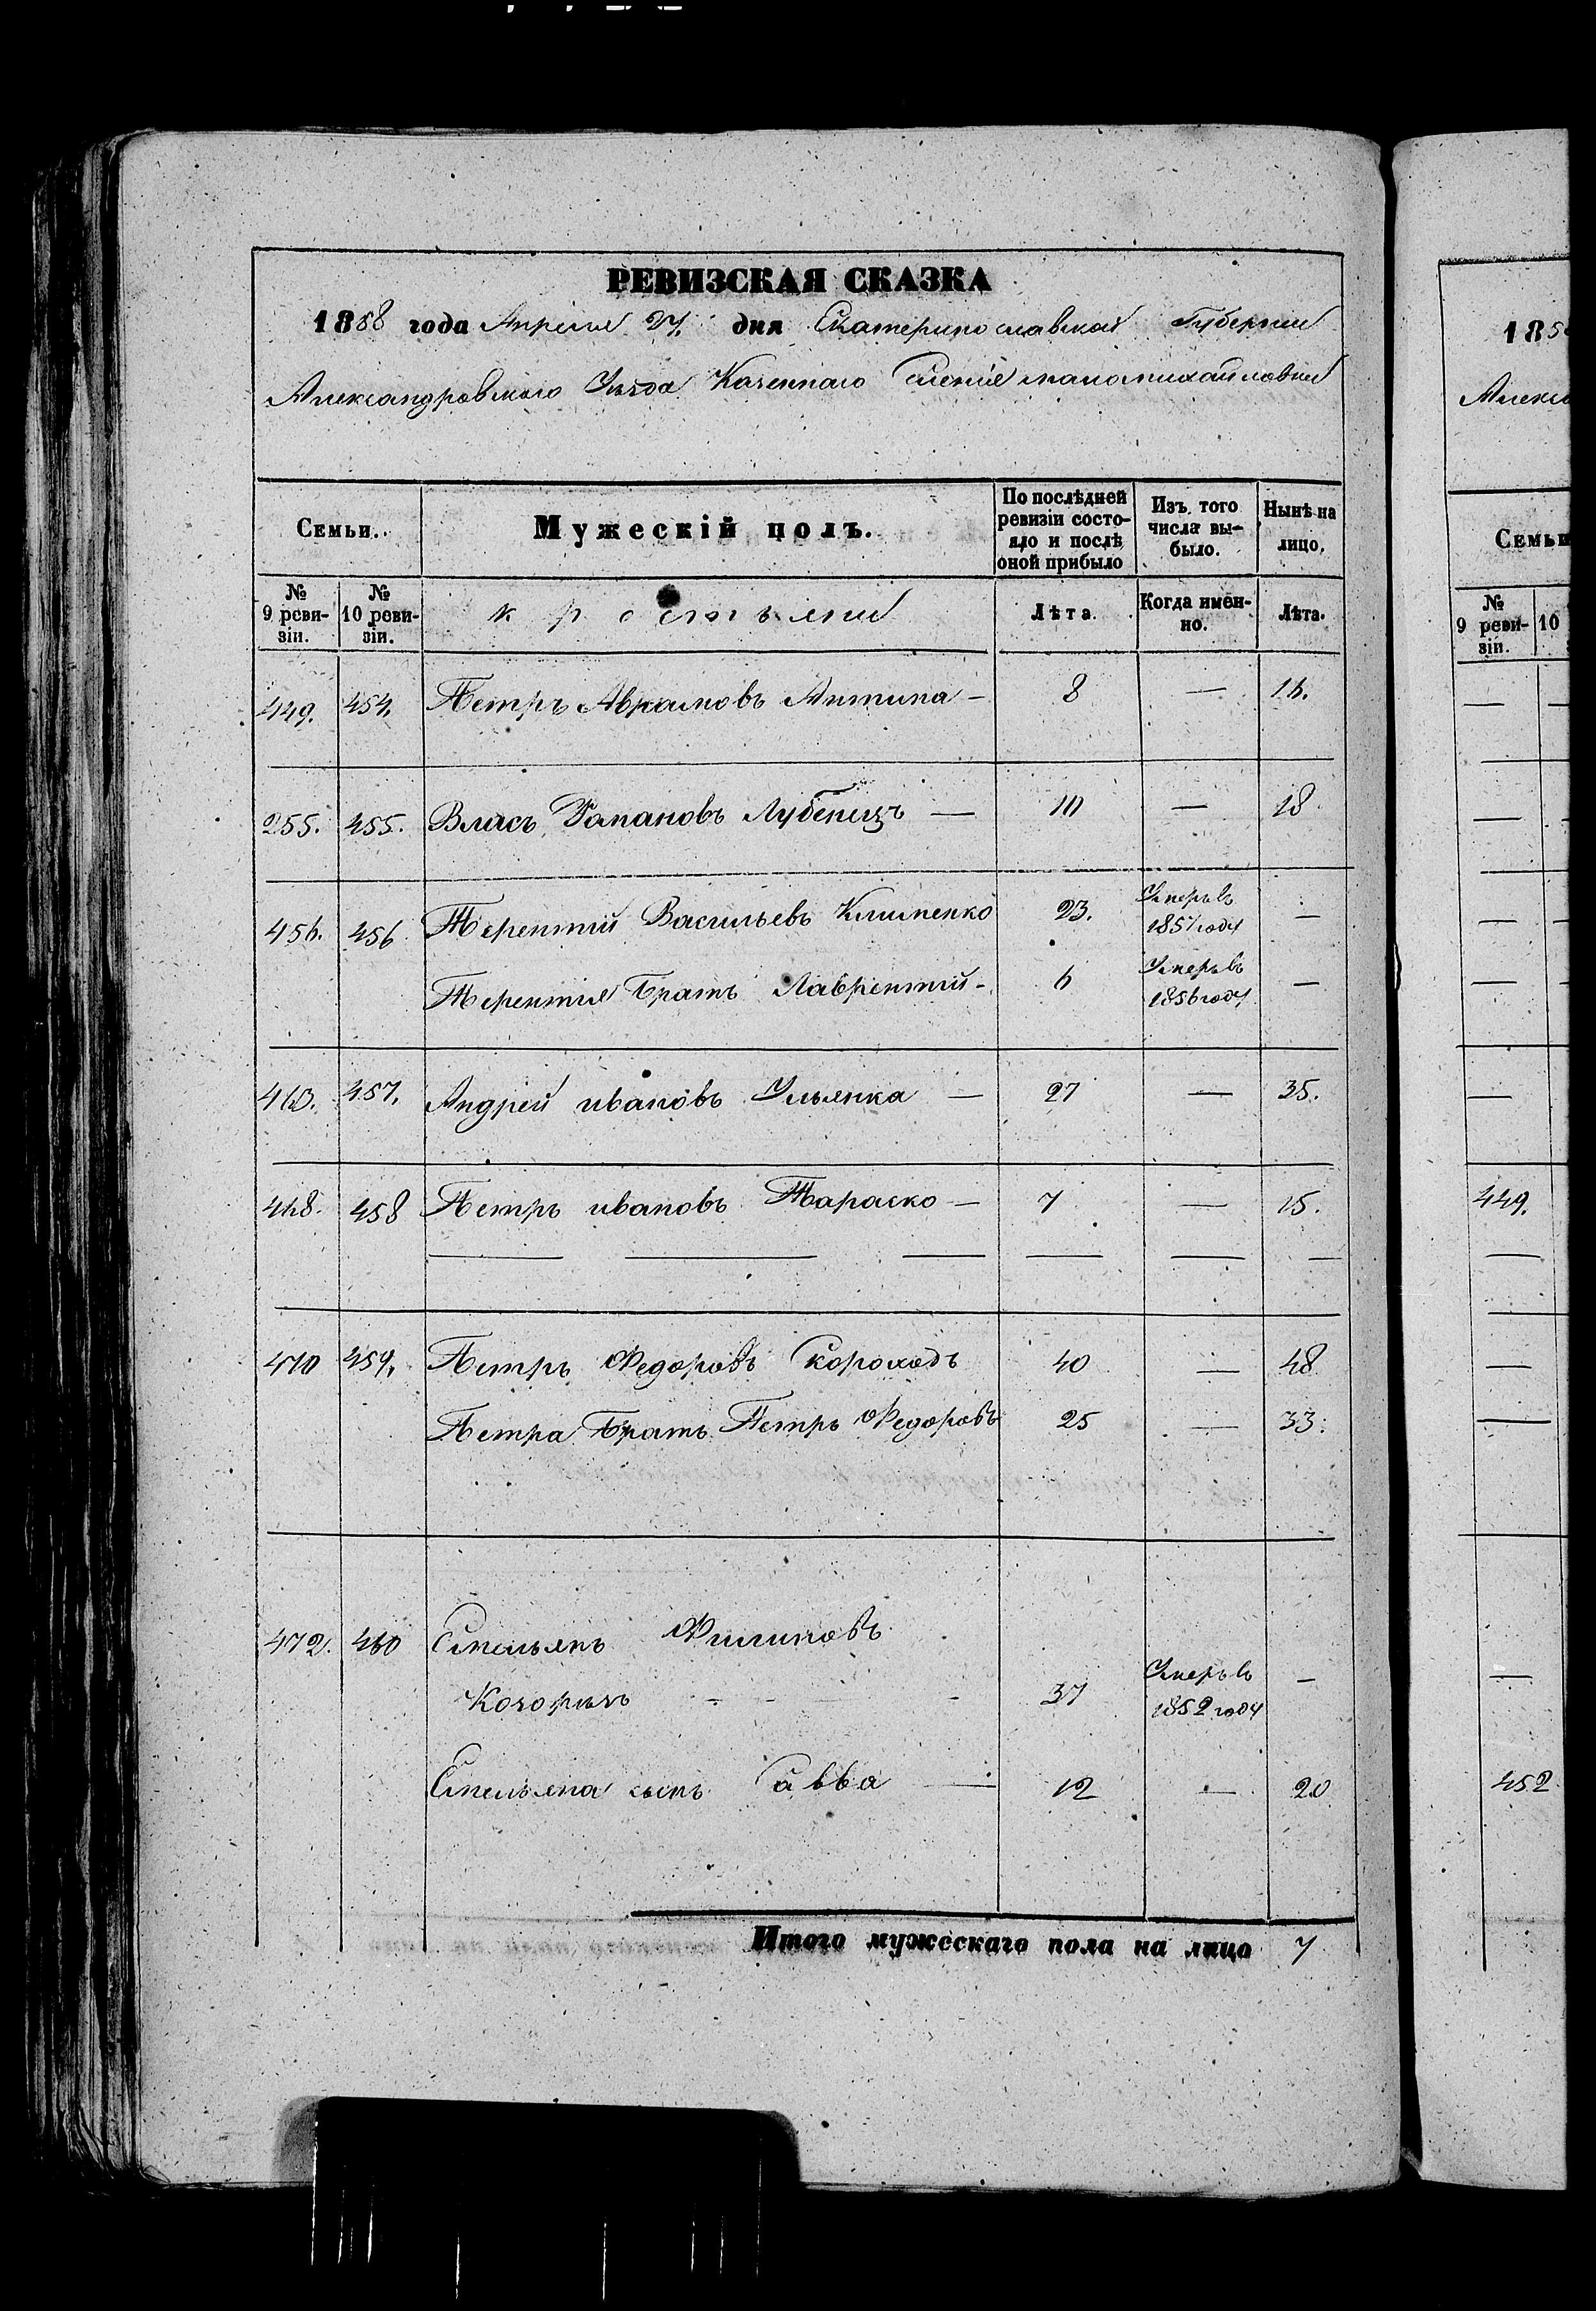 РЕВИЗСКАЯ СКАЗКА
1858 года Апреля 27. дня Екатеринославской Губернии
Александровского Уезда Казенного Селенія маломихайловки
Семьи.
Мужескій полъ.
По послѣдней ревизіи состояло и послѣ оной прибыло
Изъ того числа выбыло.
Нынѣ на лицо.
№ 9 ревизіи.
№ 10 ревизіи.
крестьяни
Лѣта.
Когда именно.
Лѣта.
449. 454. Петръ Аврамовъ Антипа — 8 — 16.
255. 455. Власъ Рамановъ Лубенецъ — 10 — 18
456. 456 Терентий Васильевъ Клименко 23. Умеръ въ 1857 году —
Терентия Братъ Лаврентий - 6 Умеръ въ 1856 году —
463. 457. Андрей ивановъ Ульянка — 27 — 35.
468. 458 Петръ ивановъ Тараско — 7 — 15.
470 459. Петръ Федоровъ Скороходъ 40 — 48
Петра Братъ Петръ Федоровъ 25 — 33.
472. 460 Емельянъ Филиповъ
37 Умеръ въ 1852 году —
Емельяна сынъ Савва — 12 — 20
Итого мужескаго пола на лицо 7
185
Алекса
Семьи
№ 9 ревизіи.
10
449.
452